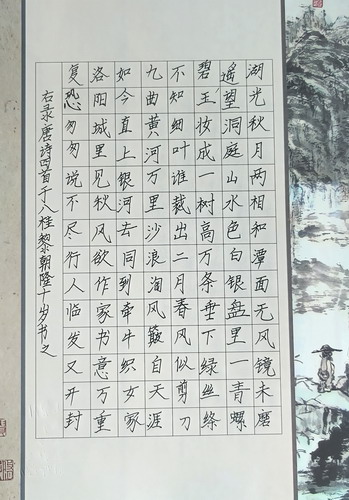 湖光秋月两相和潭面无风镜未磨
遥望洞庭山水色白银盘里一青螺
碧玉妆成一树高万条垂下绿丝绦
不知细叶谁裁出二月春风似剪刀
九曲黄河万里沙浪淘风簸自天涯
如今直上银河去同到牵牛织女家
洛阳城里见秋风欲作家书意万重
复恐匆匆说不尽行人临发又开封
右录唐诗四首于八桂黎朝隆十岁书之